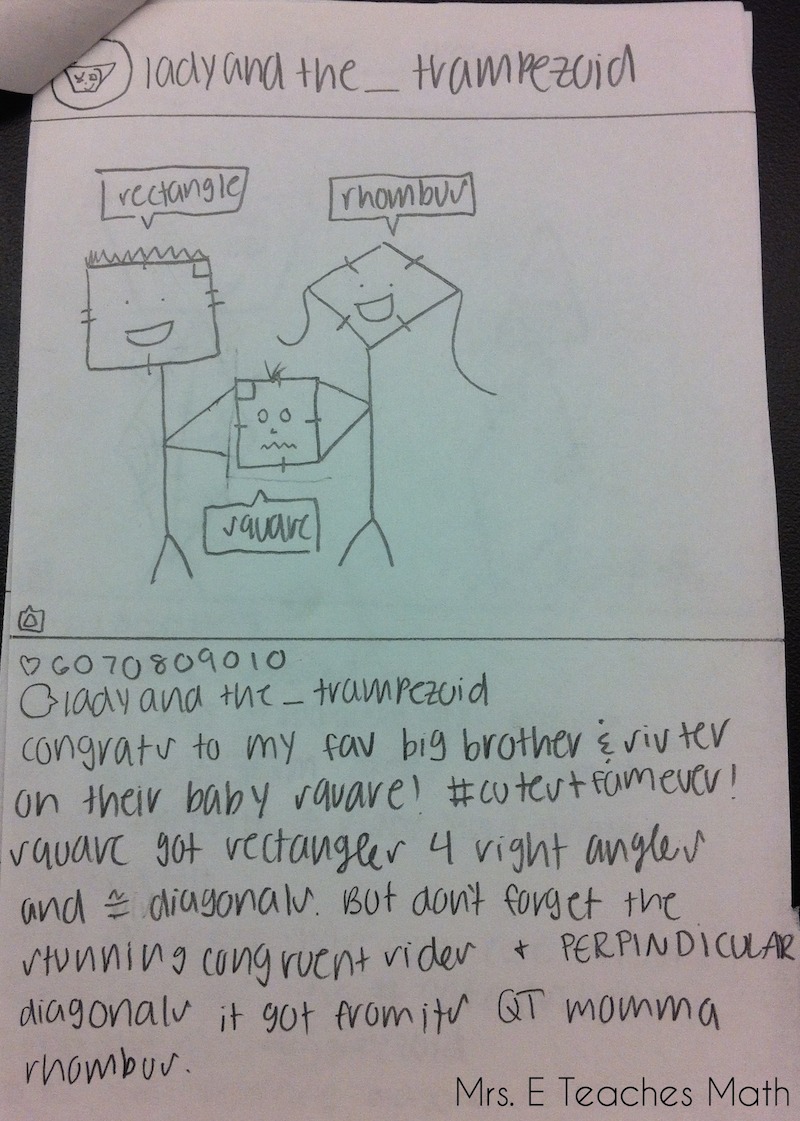 lady and the_ trampezoid
rectangle
rhombus
square
♡ 6070809010
lady and the_ trampezoid
congrats to my fav big brother & sister
on their baby square! #cutestfamever!
square got rectangles 4 right angles
and ≅ diagonals. But don't forget the
stunning congruent sides + PERPINDICULAR
diagonals it got from its QT momma
rhombus.
Mrs. E Teaches Math